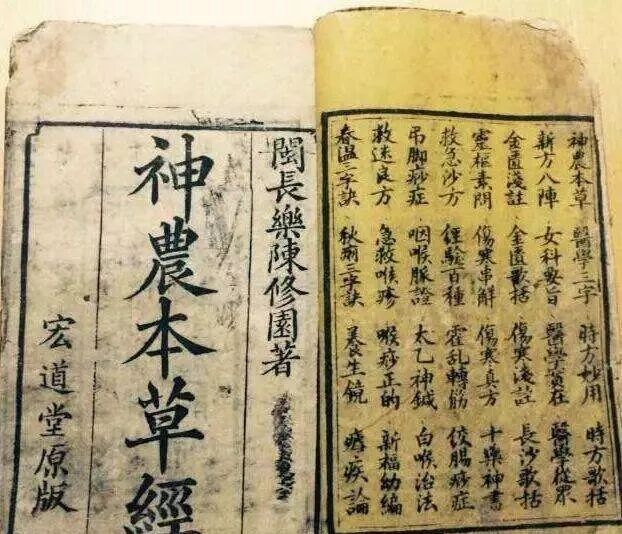 神農本草 醫學三字 時方妙用 時方歌括
新方八陣 女科要旨 醫學實在 醫學從衆
金匱淺註 金匱歌括 傷寒淺註 長沙歌括
靈樞素問 傷寒串解 傷寒真方 十藥神書
救急沙方 經驗百種 霍乱轉筋 绞腸痧症
吊脚痧症 咽喉脈證 太乙神鍼 白喉治法
救迷良方 急救喉疹 喉痧正的 新福幼編
春温三字訣 秋三字訣 養生鏡 疾論
閩長樂陳修園著
神農本草經
宏道堂原版